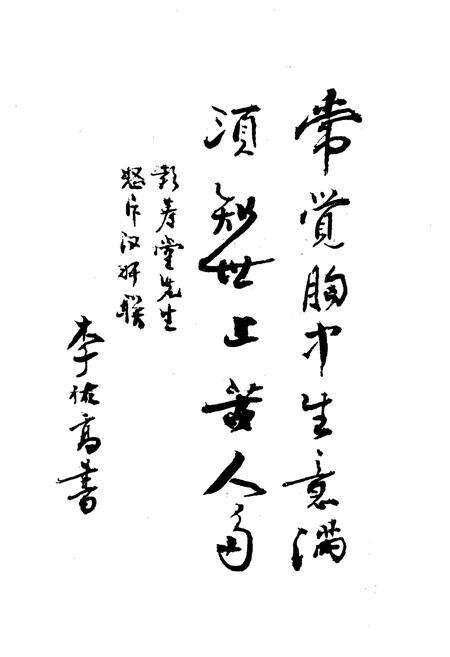 常覺胸中生意滿
湏知世上苦人多
彭寿堂先生
怒斥汉奸联
李佑高書